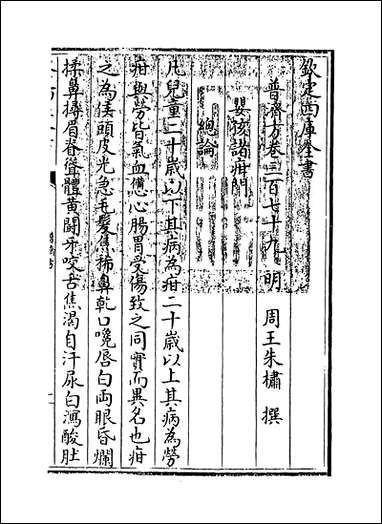 欽定四庫全書
普濟方卷三百七十九 明 周王朱橚 撰
嬰孩諸疳門
總論
凡兒童二十歲以下其病為疳二十歲以上其病為勞
疳與勞皆氣血憊心腸胃受傷致之同實而異名也疳
之為候頭皮光急毛髮焦稀鼻乾口嚵唇白両眼昏爛
揉鼻撏眉脊聳體黄鬭牙咬舌焦渴自汗尿白瀉酸肚